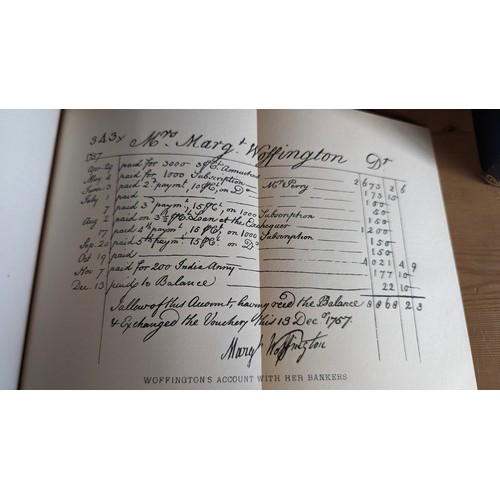 343x Mrs Margt Woffington Dr
1757
Apr. 29 paid for 3000 3 ℔ Ct Annuities Mr Perry 2673 2 6
May 4 paid for 1000 Subscription 173 15
June 3 paid 2d paymt, 10 ℔ Ct, on Do 100
July 1 paid 50
7 paid 3d paymt, 15 ℔ Ct, on 1000 Subscription 150
Aug 2 paid on 3½ ℔ Ct Loan at the Exchequer 1200
17 paid 4th paymt, 15 ℔ Ct, on 1000 Subscription 150
Sep. 20 paid 5th paymt, 15 ℔ Ct, on Do 150
Oct 19 paid 4021 4 9
Nov 7 paid for 200 India Anny 177 10
Dec. 13 paid to Balance 22 10
I allow of this Accomt, having recd the Balance 8868 2 3
& Exchanged the Vouchers this 13 Decr 1757.
Margt Woffington
WOFFINGTON'S ACCOUNT WITH HER BANKERS